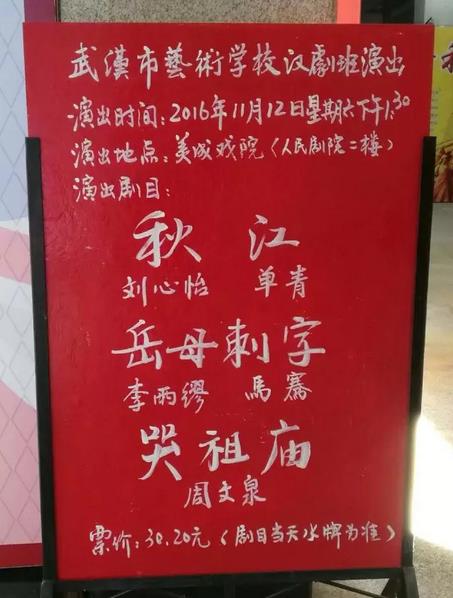 武漢市藝術学校汉劇班演出
演出时间:2016年11月12日星期六下午1:30
演出地点:美成戏院(人民剧院二楼)
演出剧目:
秋江
刘心怡 单青
岳母刺字
李雨缪 馬騫
哭祖庙
周文泉
票价:30.20元(剧目当天水牌为准)